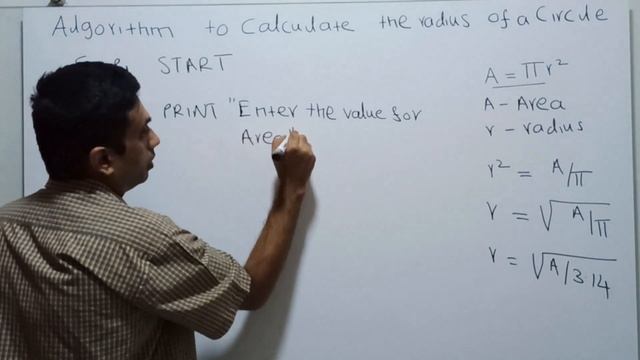 Algorithm to Calculate the radius of a Circle
START
PRINT "Enter the value for
Area"
A = πr²
A - Area
r - radius
r² = A/π
r = √A/π
r = √A/3.14